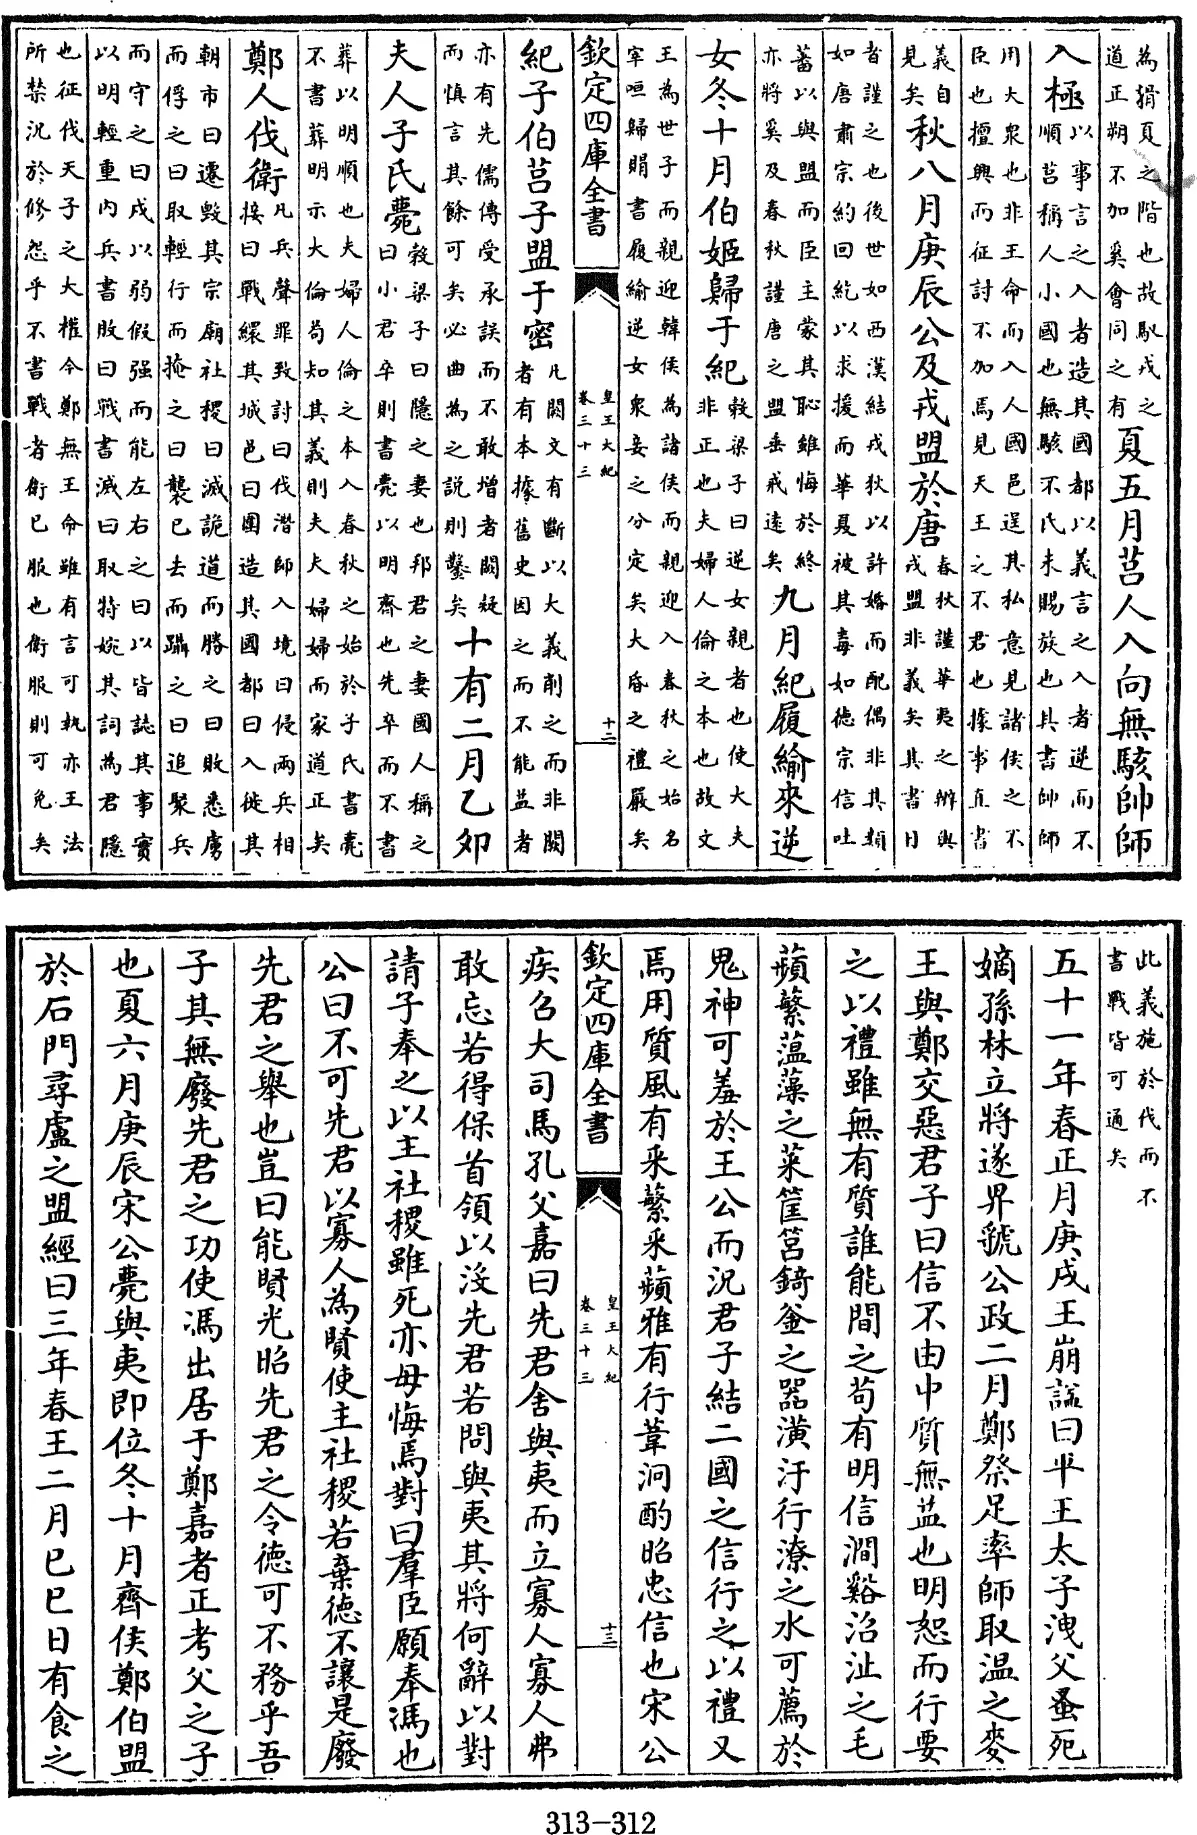 為猾夏之階也故馭戎之道正朔不加奚會同之有夏五月莒人入向無駭帥師
入極以事言之入者造其國都以義言之入者逆而不順莒稱人小國也無駭不氏未賜族也其書帥師
用大衆也非王命而入人國邑逞其私意見諸侯之不臣也擅興而征討不加焉見天王之不君也據事直書
義自見矣秋八月庚辰公及戎盟於唐春秋謹華夷之辨與戎盟非義矣其書日
者謹之也後世如西漢結戎狄以許婚而配偶非其類如唐肅宗約回紇以求援而華夏被其毒如德宗信吐
蕃以與盟而臣主蒙其恥雖悔於終亦將奚及春秋謹唐之盟垂戒遠矣九月紀履緰來逆
女冬十月伯姬歸于紀榖梁子曰逆女親者也使大夫非正也夫婦人倫之本也故文
王為世子而親迎韓侯為諸侯而親迎入春秋之始名宰咺歸賵書履緰逆女衆妾之分定矣大昏之禮嚴矣
欽定四庫全書 皇王大紀 卷三十三 十二
紀子伯莒子盟于密凡闕文有斷以大義削之而非闕者有本據舊史因之而不能益者
亦有先儒傳受承誤而不敢增者闕疑而慎言其餘可矣必曲為之説則鑿矣十有二月乙卯
夫人子氏薨榖梁子曰隱之妻也邦君之妻國人稱之曰小君卒則書薨以明齊也先卒而不書
葬以明順也夫婦人倫之本入春秋之始於子氏書薨不書葬明示大倫苟知其義則夫夫婦婦而家道正矣
鄭人伐衛凡兵聲罪致討曰伐潛師入境曰侵兩兵相接曰戰繯其城邑曰圍造其國都曰入徙其
朝市曰遷毀其宗廟社稷曰滅詭道而勝之曰敗悉虜而俘之曰取輕行而掩之曰襲已去而躡之曰追聚兵
而守之曰戍以弱假强而能左右之曰以皆誌其事實以明輕重内兵書敗曰戰書滅曰取特婉其詞為君隱
也征伐天子之大權今鄭無王命雖有言可執亦王法所禁況於修怨乎不書戰者衛已服也衛服則可免矣
此義施於伐而不書戰皆可通矣
五十一年春正月庚戌王崩諡曰平王太子洩父蚤死
嫡孫林立將遂畀虢公政二月鄭祭足率師取溫之麥
王與鄭交惡君子曰信不由中質無益也明恕而行要
之以禮雖無有質誰能間之苟有明信澗谿沼沚之毛
蘋蘩薀藻之菜筐筥錡釡之器潢汙行潦之水可薦於
鬼神可羞於王公而況君子結二國之信行之以禮又
焉用質風有采蘩采蘋雅有行葦泂酌昭忠信也宋公
欽定四庫全書 皇王大紀 卷三十三 十三
疾召大司馬孔父嘉曰先君舍與夷而立寡人寡人弗
敢忘若得保首領以沒先君若問與夷其將何辭以對
請子奉之以主社稷雖死亦毋悔焉對曰羣臣願奉馮也
公曰不可先君以寡人為賢使主社稷若棄德不讓是廢
先君之舉也豈曰能賢光昭先君之令德可不務乎吾
子其無廢先君之功使馮出居于鄭嘉者正考父之子
也夏六月庚辰宋公薨與夷即位冬十月齊侯鄭伯盟
於石門尋盧之盟經曰三年春王二月己巳日有食之
313-312